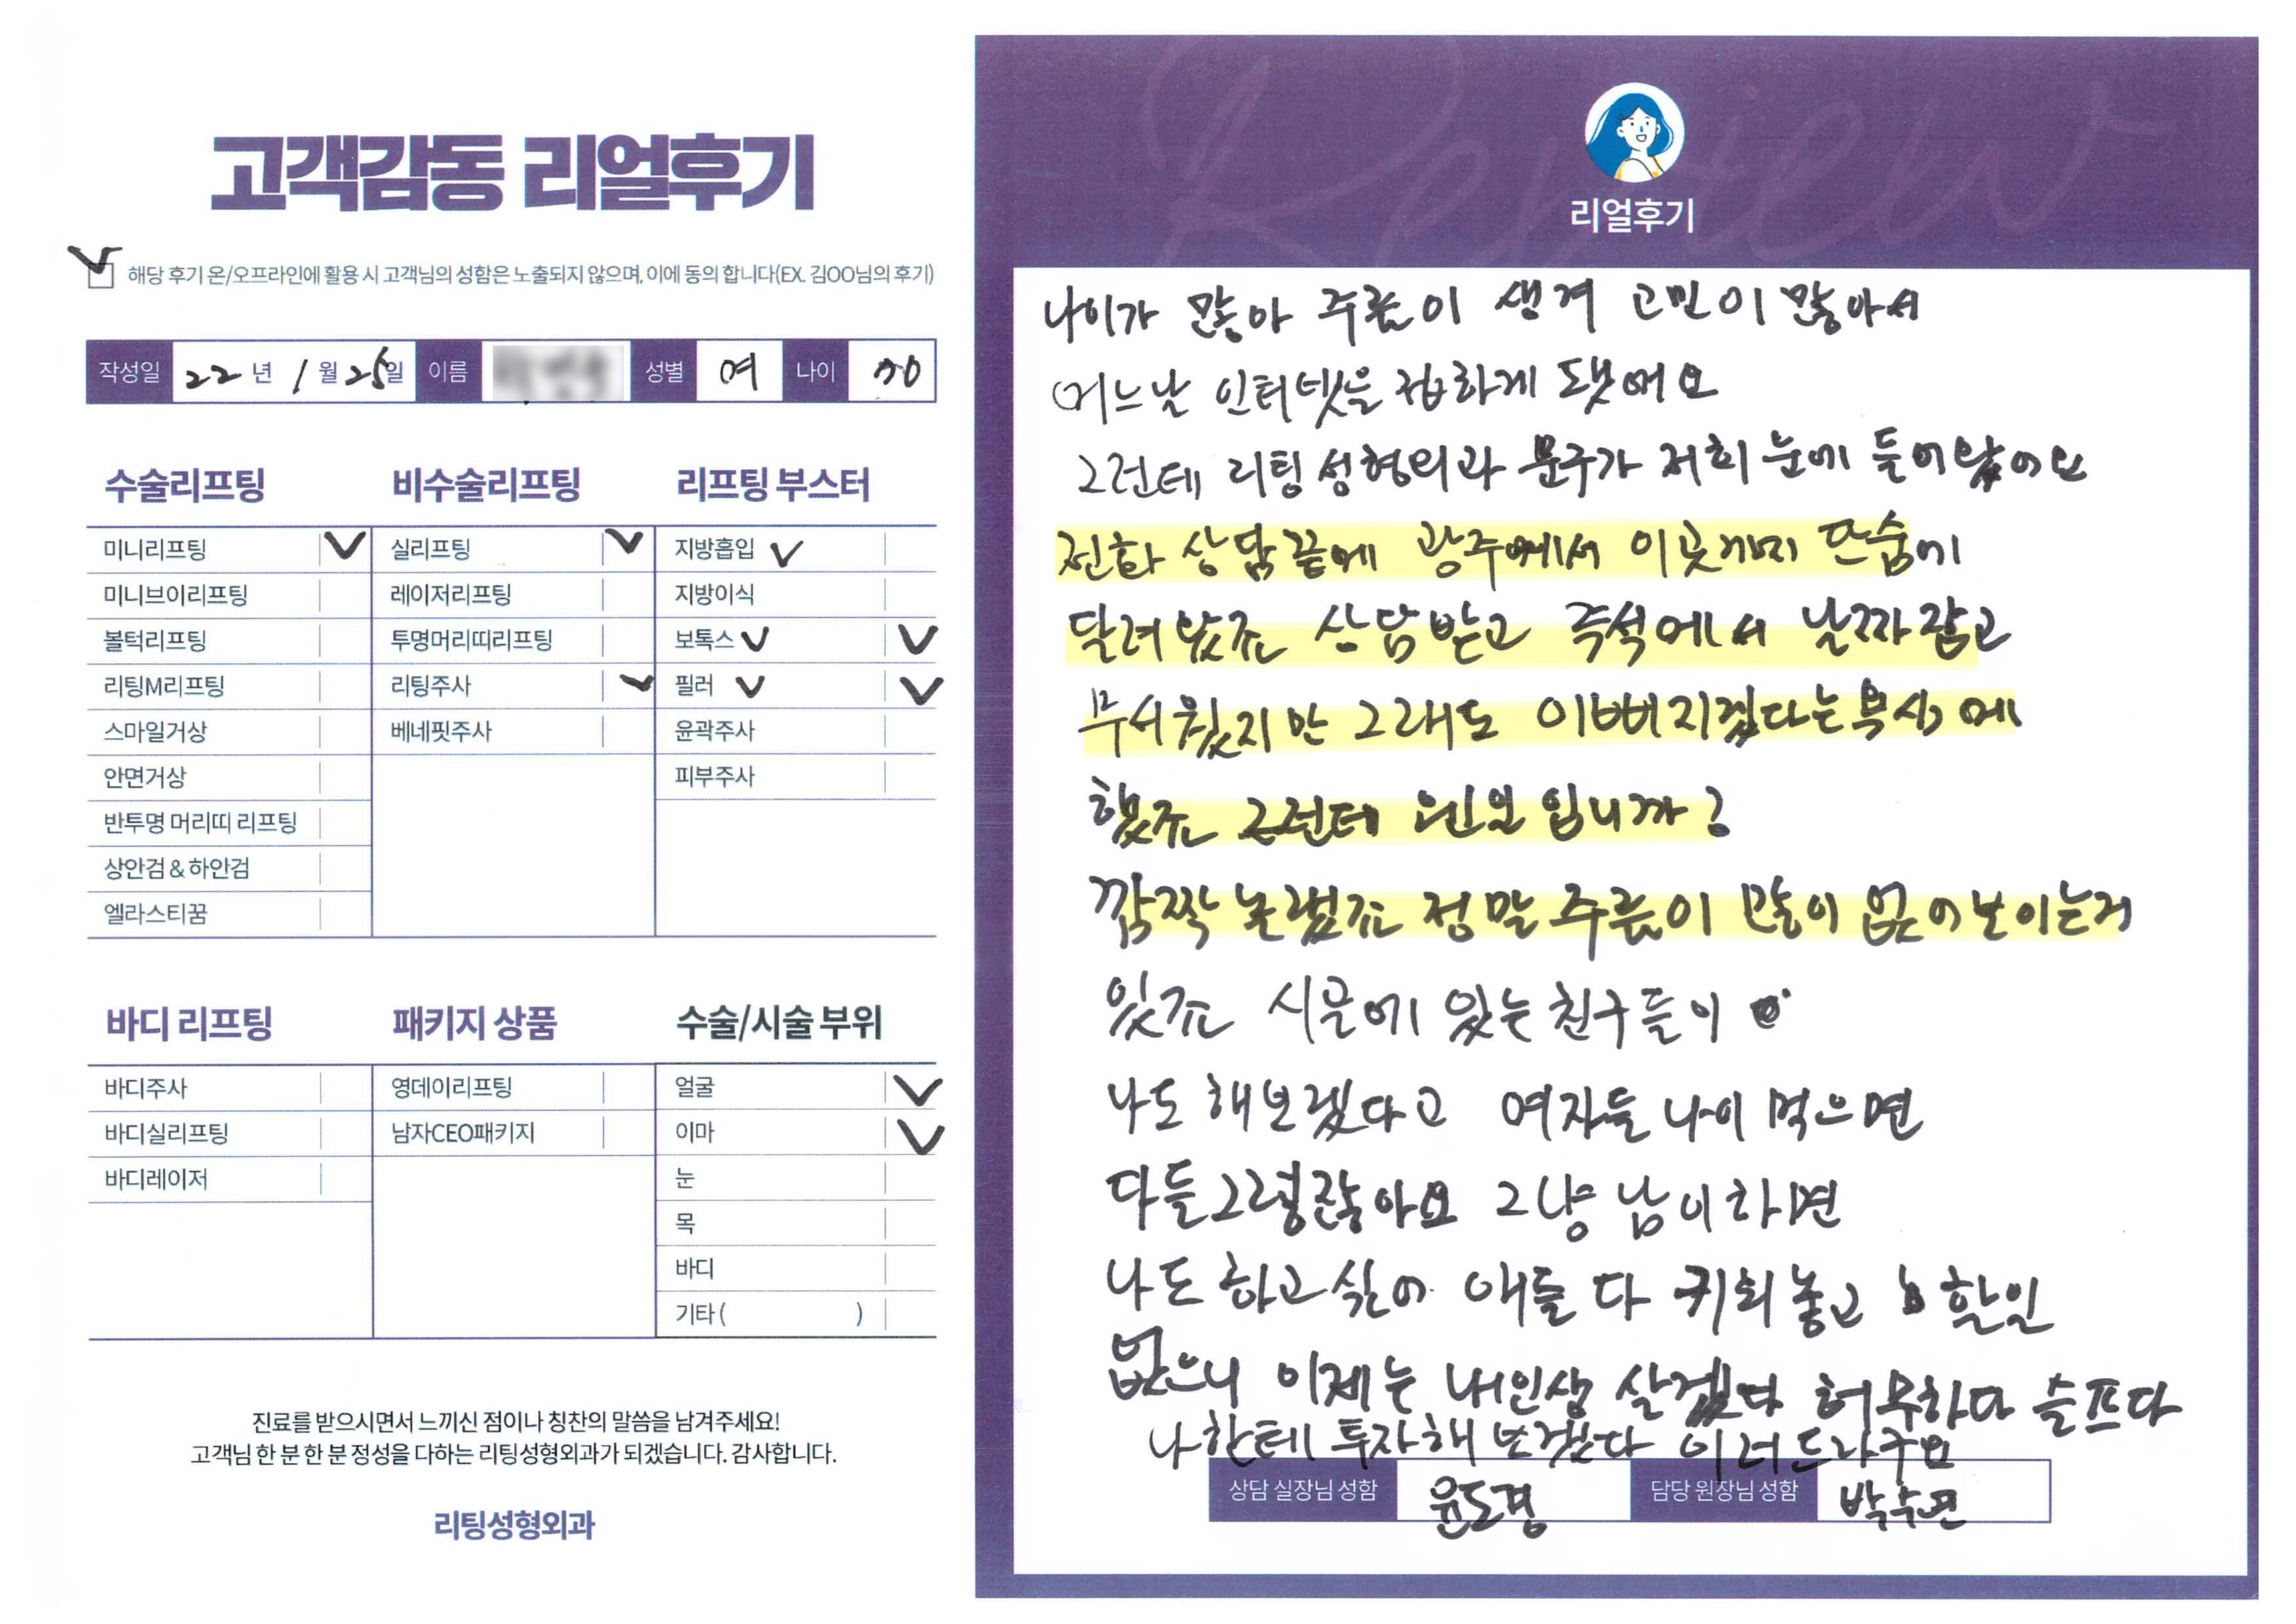 고객감동 리얼후기
해당 후기 온/오프라인에 활용 시 고객님의 성함은 노출되지 않으며, 이에 동의 합니다(EX. 김OO님의 후기)
작성일 22년 1월 25일 이름 성별 여 나이 70
수술리프팅
미니리프팅
미니브이리프팅
볼턱리프팅
리팅M리프팅
스마일거상
안면거상
반투명 머리띠 리프팅
상안검 & 하안검
엘라스티꿈
비수술리프팅
실리프팅
레이저리프팅
투명머리띠리프팅
리팅주사
베네핏주사
리프팅 부스터
지방흡입
지방이식
보톡스
필러
윤곽주사
피부주사
바디 리프팅
바디주사
바디실리프팅
바디레이저
패키지 상품
영데이리프팅
남자CEO패키지
수술/시술 부위
얼굴
이마
눈
목
바디
기타 ( )
진료를 받으시면서 느끼신 점이나 칭찬의 말씀을 남겨주세요!
고객님 한 분 한 분 정성을 다하는 리팅성형외과가 되겠습니다. 감사합니다.
리팅성형외과
Review
리얼후기
나이가 많아 주름이 생겨 고민이 많아서
어느날 인터넷을 접하게 됐어요
그런테 리팅성형외과 문구가 저희 눈에 들어왔어요
전화 상담끝에 광주에서 이곳까지 단숨에
달려왔죠 상담받고 즉석에서 날짜잡고
무서웠지만 그래도 이뻐지겠다는 욕심에
했죠 그런테 왼일입니까?
깜짝 놀랬죠 정말 주름이 많이 없어보이는거
있죠 시골에 있는 친구들이
나도 해보겠다고 여자들 나이 먹으면
다들 그렇찮아요 그냥 남이 하면
나도 하고싶어 애들 다 키워놓고 할일
없으니 이제는 내인생 살겠다 허무하다 슬프다
나한테 투자해 보겠다 이러드라구요
상담 실장님 성함 윤도경 담당 원장님 성함 박수연